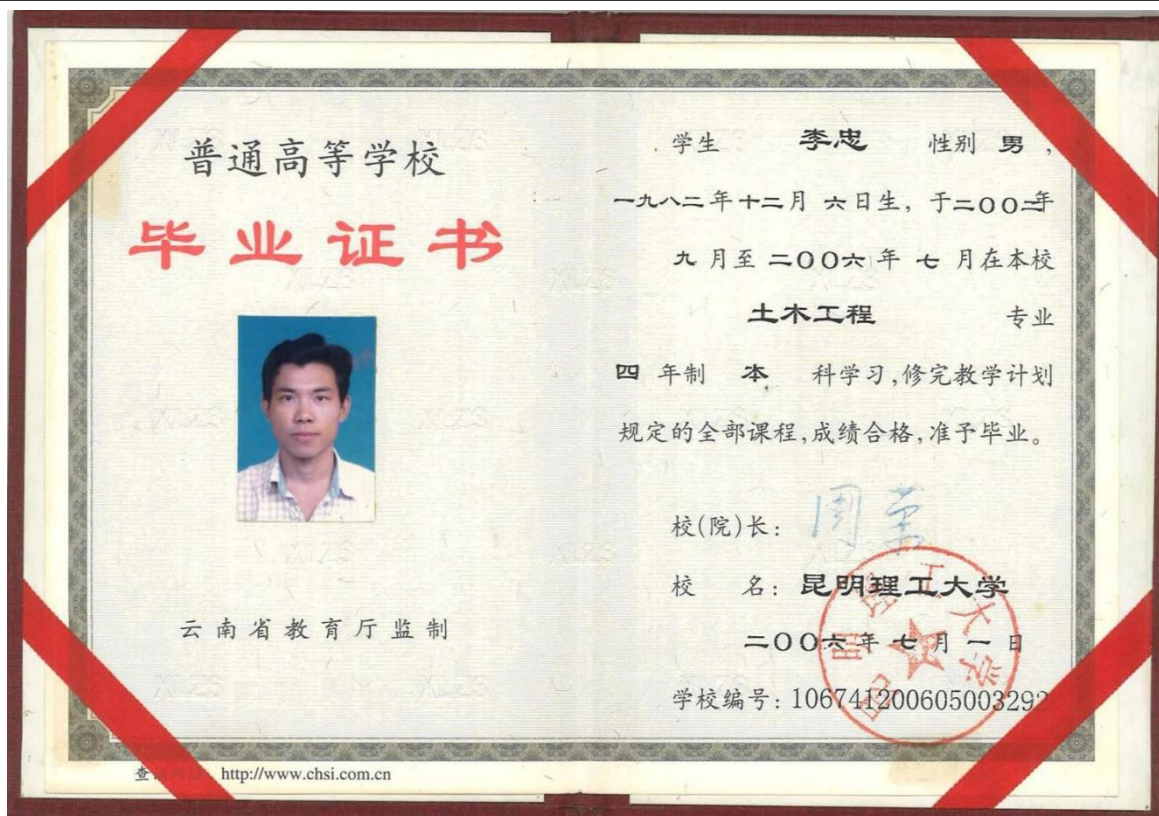 普通高等学校
毕业证书
云南省教育厅监制
http://www.chsi.com.cn
学生 李忠 性别 男,
一九八二年十二月 六日生, 于二〇〇二年
九 月至 二〇〇六 年 七 月在本校
土木工程 专业
四 年制 本 科学习,修完教学计划
规定的全部课程,成绩合格,准予毕业。
校(院)长:
校 名: 昆明理工大学
二〇〇六 年 七 月 一 日
学校编号: 10674120060500329
昆明理工大学